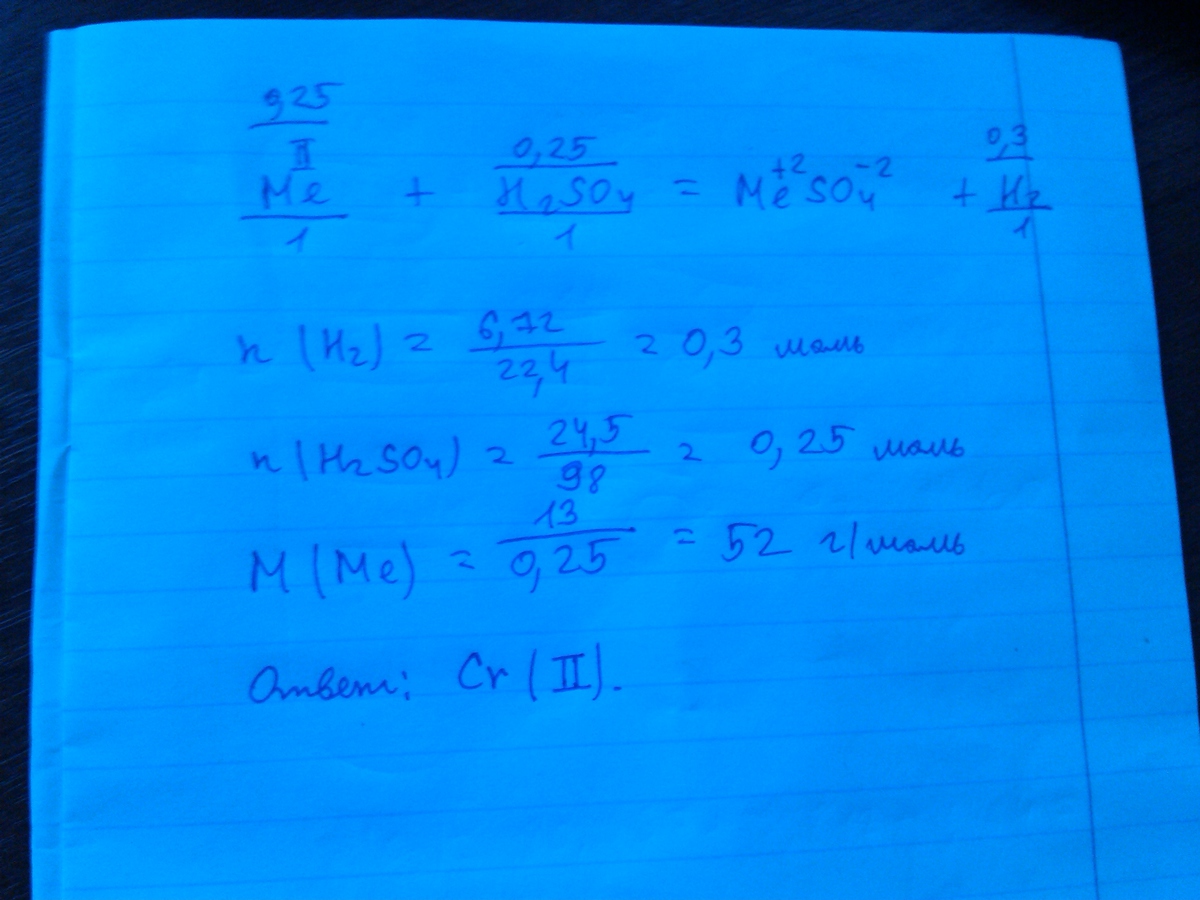 0,25
II 0,25 0,3
Me + H₂SO₄ = Me⁺²SO₄⁻² + H₂
1 1 1
n (H₂) = 6,72/22,4 = 0,3 моль
n (H₂SO₄) = 24,5/98 = 0,25 моль
M (Me) = 13/0,25 = 52 г/моль
Ответ: Cr (II).